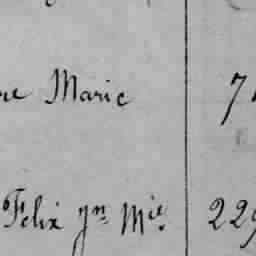 ne Marie 7
Felix jn Mie. 229